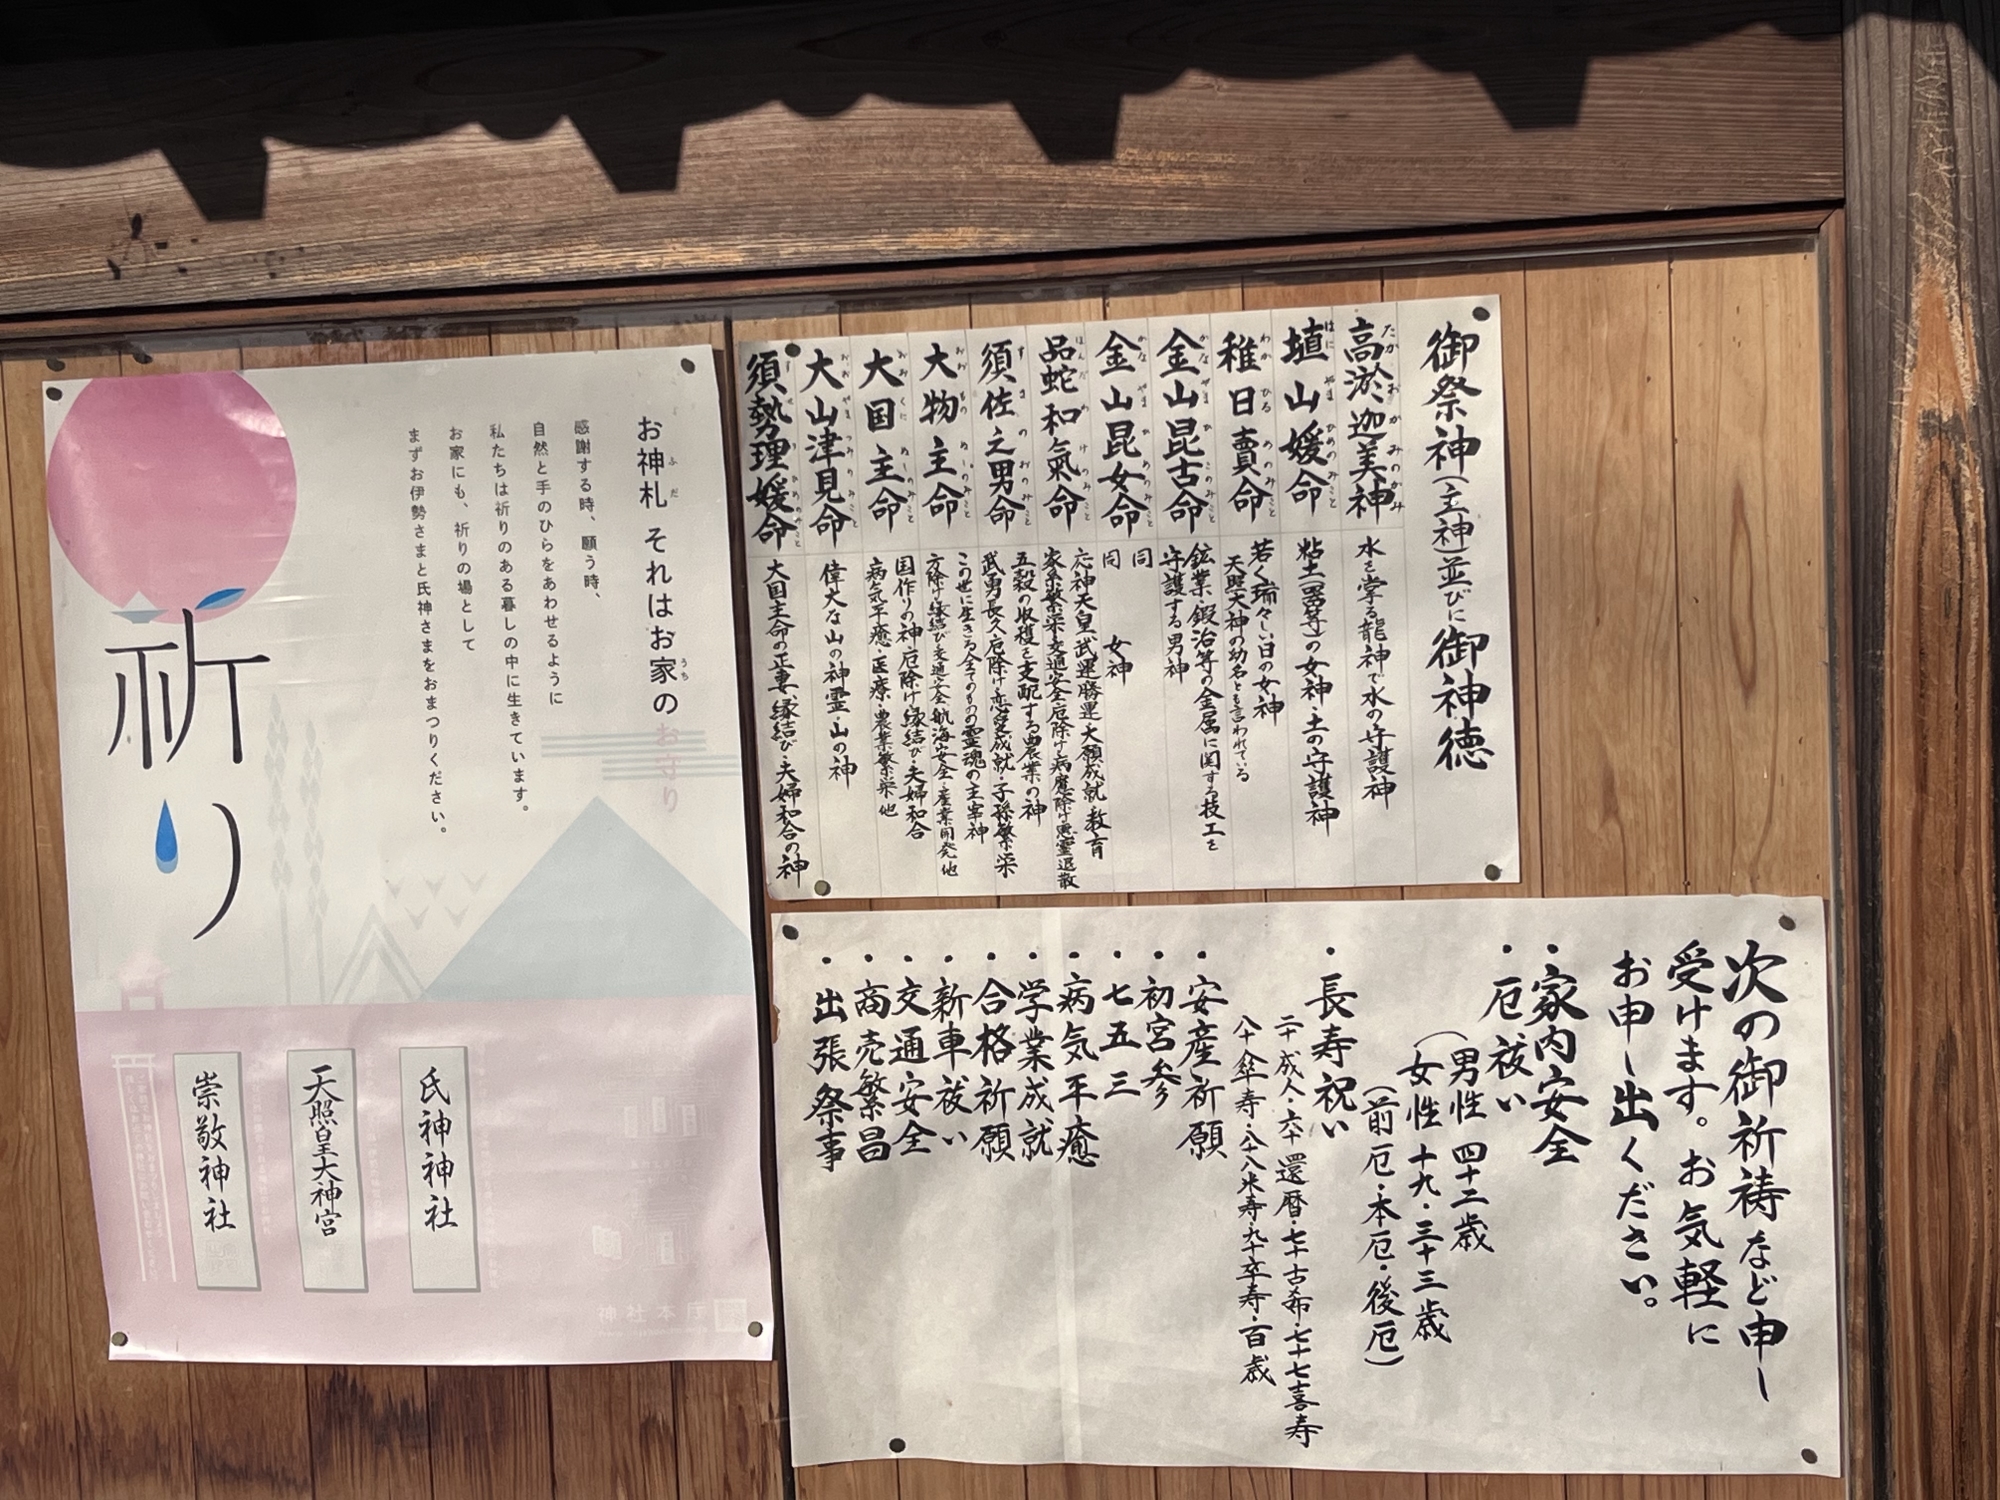 御祭神(主神)並びに御神徳
高淤迦美神 水を掌る龍神で水の守護神
たかおかみのかみ
埴山媛命 粘土(男等)の女神・土の守護神
はにやまひめのみこと
稚日賣命 若く瑞々しい日の女神
わかひるめのみこと
天照大神の幼名とも言われている
金山昆古命 鉱業・鍛治等の金属に関する技工を
かなやまひこのみこと
守護する男神
金山昆女命 同 女神
かなやまひめのみこと
同
品蛇和氣命 応神天皇 武運勝運・大願成就・教育
ほんだわけのみこと
家系繁栄・交通安全・厄除け・病魔除け・悪霊退散
須佐之男命 五穀の収穫を支配する農業の神
すさのおのみこと
武勇長久・厄除け・恋愛成就・子孫繁栄
大物主命 この世に生きる全てのものの霊魂の主宰神
おおものぬしのみこと
方除け・縁結び・交通安全・航海安全・産業開発他
大国主命 国作りの神・厄除け・縁結び・夫婦和合
おおくにぬしのみこと
病気平癒・医療・農業繁栄他
大山津見命 偉大な山の神霊・山の神
おおやまつみのみこと
須勢理媛命 大国主命の正妻、縁結び・夫婦和合の神
すせりひめのみこと
次の御祈祷など申し
受けます。お気軽に
お申し出ください。
・家内安全
・厄祓い
(男性 四十二歳
女性 十九・三十三歳
(前厄・本厄・後厄)
・長寿祝い
二十成人・六十還暦・七十古希・七十七喜寿
八十傘寿・八十八米寿・九十卒寿・百歳
・安産祈願
・初宮参
・七五三
・病気平癒
・学業成就
・合格祈願
・新車祓い
・交通安全
・商売繁昌
・出張祭事
お神札 それはお家のお守り
ふだ うち
感謝する時、願う時、
自然と手のひらをあわせるように
私たちは祈りのある暮しの中に生きています。
お家にも、祈りの場として
まずお伊勢さまと氏神さまをおまつりください。
祈り
氏神神社
天照皇大神宮
崇敬神社
神社本庁